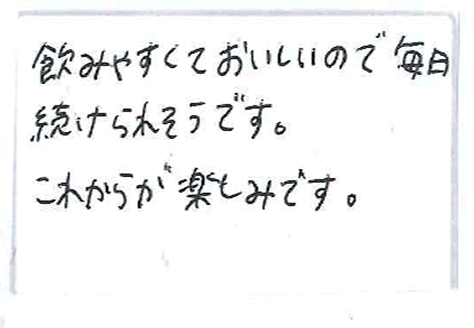 飲みやすくておいしいので毎日
続けられそうです。
これからが楽しみです。